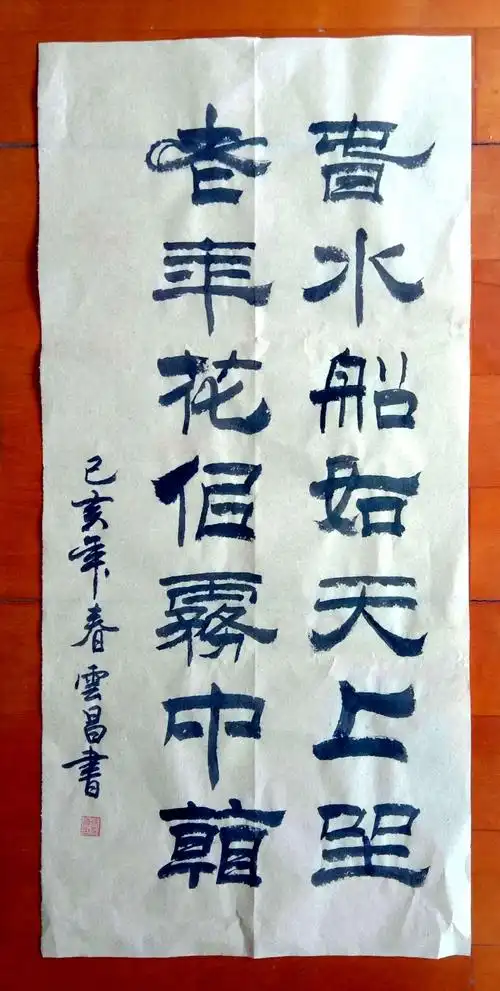 春水船如天上坐
老年花佀霧中看
己亥年春雲昌書